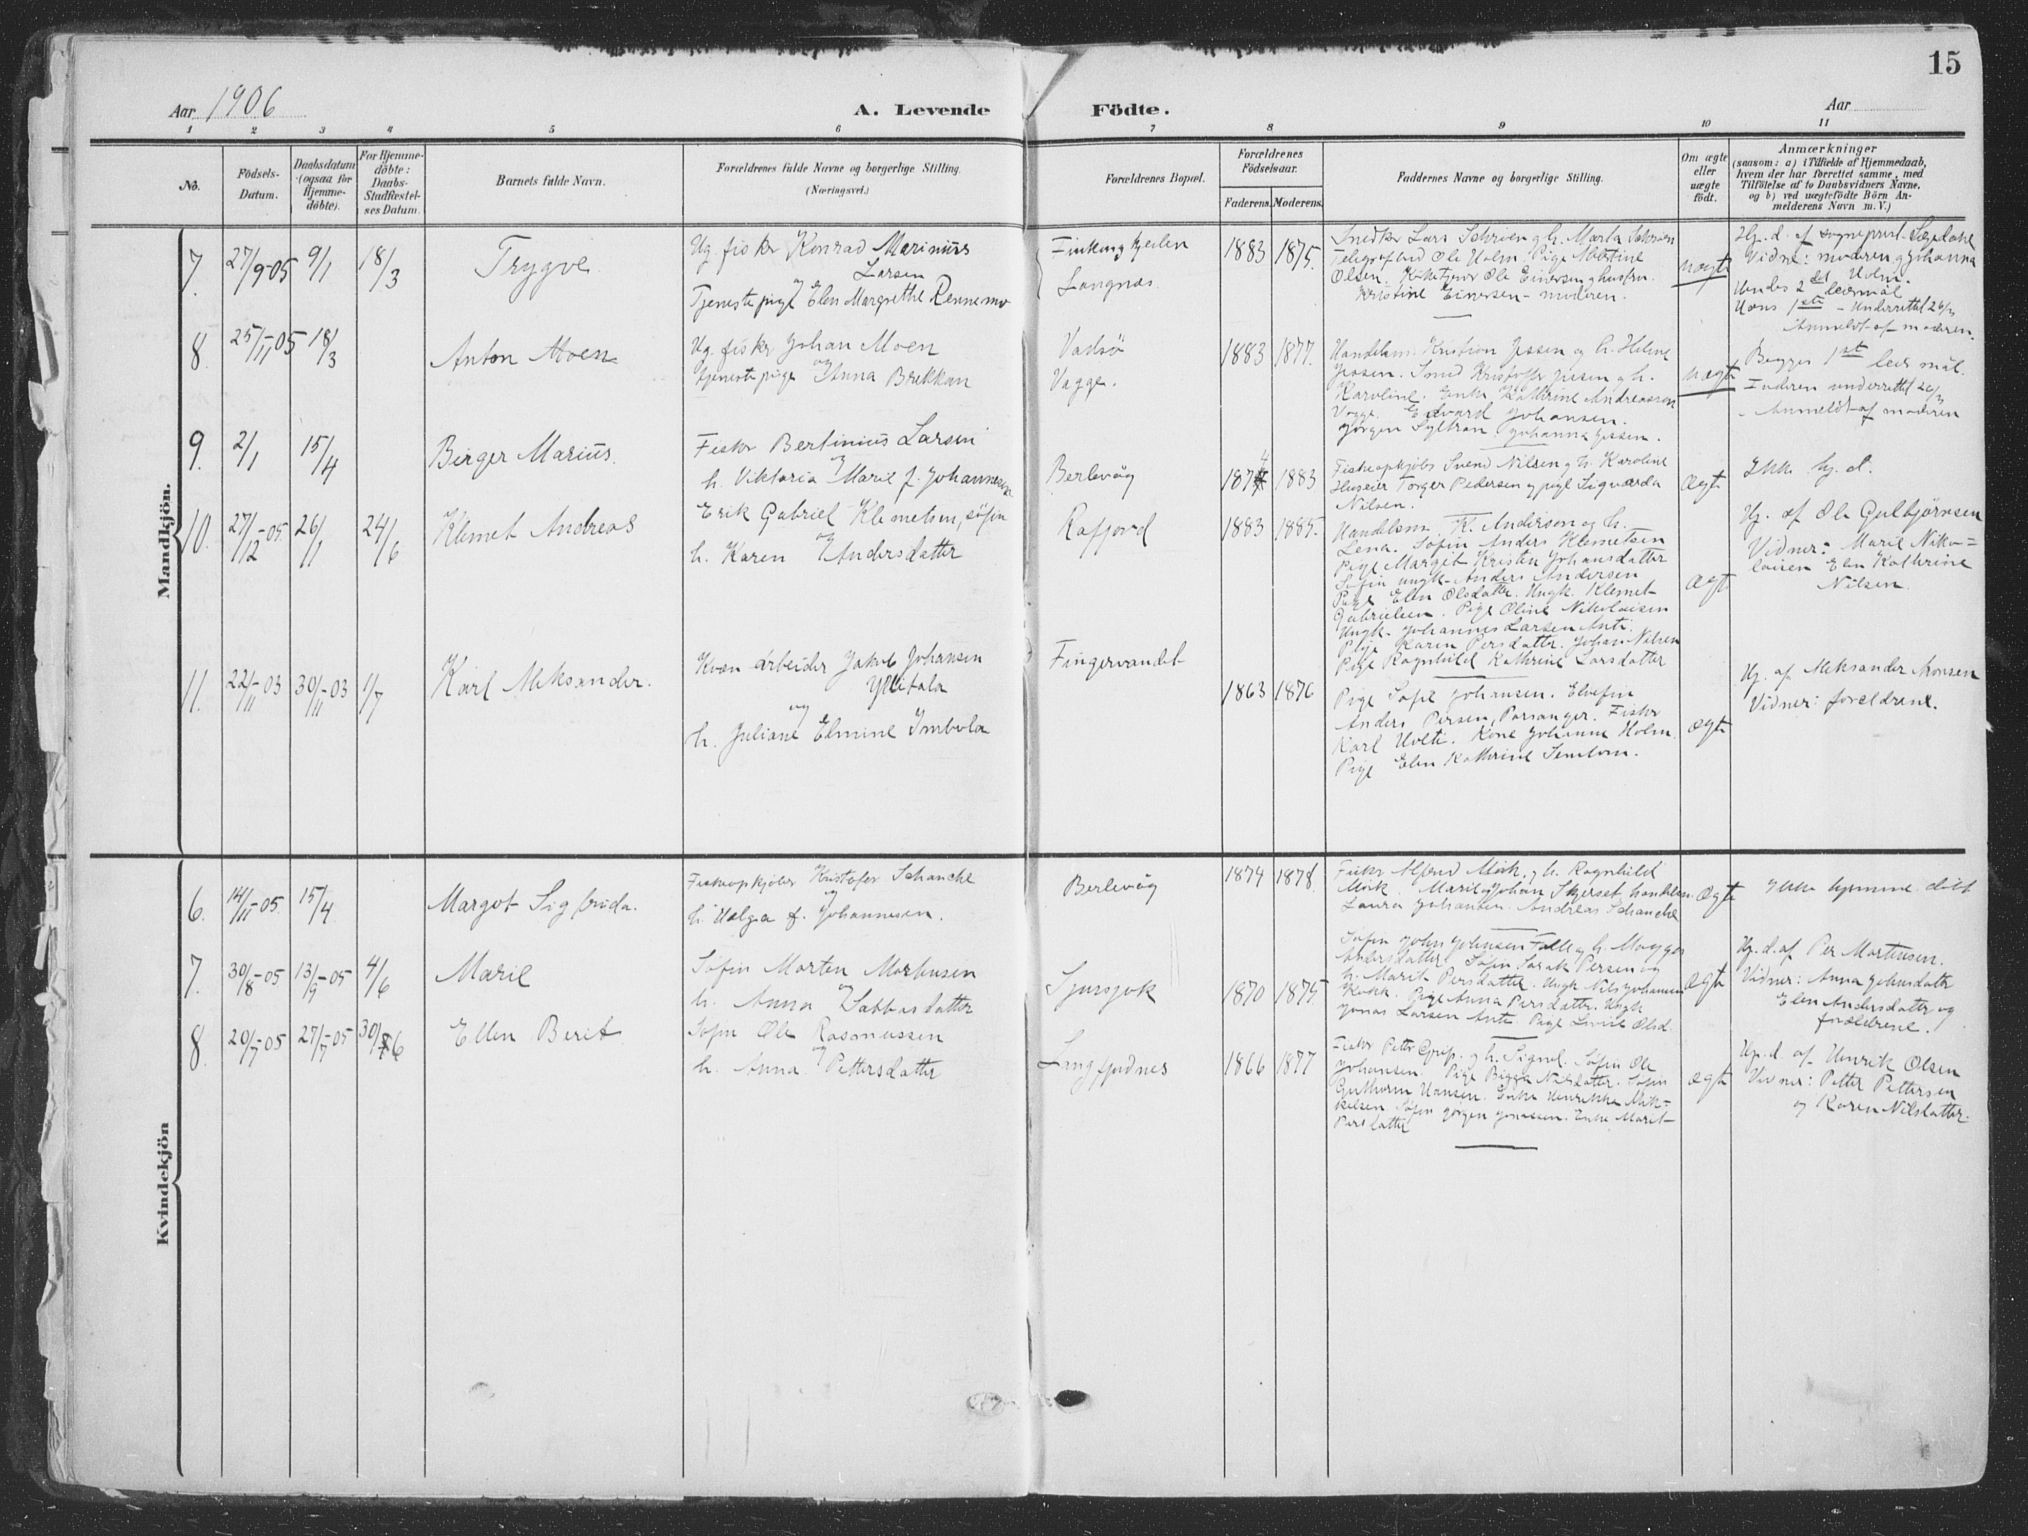 15
Aar 1906
A. Levende Födte.
Aar
1 2 3 4 5 6 7 8 9 10 11
No.
Födsels-Datum.
Daabsdatum (ogsaa for Hjemme-döbte).
For Hjemme-döbte: Daabs-Stadfæstel-ses Datum.
Barnets fulde Navn.
Forældrenes fulde Navne og borgerlige Stilling.
(Næringsvei.)
Forældrenes Bopæl.
Forældrenes Födselsaar.
Faderens. Moderens.
Faddernes Navne og borgerlige Stilling.
Om ægte eller uægte födt.
Anmærkninger
(saasom: a) i Tilfælde af Hjemmedaab,
hvem der har forrettet samme, med
Tilföielse af to Daabsvidners Navne,
og b) ved uægtefödte Börn An-
melderens Navn m. V.)
Mandkjön.
7. 27/9-05 9/1 18/3
Trygve
Ug. fisker Konrad Marinius
Larsen
Tjenestepige og Elen Margrethe Rennemo
Langnes.
1883 1875.
Kristine Einersen - moderen.
uægte
Vidne: moderen og Johanna
Holm.
Hendes 2det leiermål
Hans 1ste - Underrettet 26/3
Anmeldt af moderen.
8 25/11-05 18/3
Anton Moen
Ug. fisker Johan Moen
tjenestepige og Anna Brekkan
Vadsö
Vagge.
1883 1877.
Handelsm. Kristian Jessen og h. Helene
Jessen. Smed Kristoffer Jessen og h.
Karoline. Enke Kathrine Andreassen
Vagge. Edvard Johansen.
Jørgen Syltran. Johanna Jessen.
uægte
Begges 1ste leiermål.
Faderen underrettet 26/3
- Anmeldt af moderen
9. 2/1 15/4
Birger Marius.
Fisker Bertinius Larsen
og
h. Viktoria Marie f. Johannesen
Berlevåg
4
1883
Fiskeopkjöber Svend Nilsen og h. Karoline
Huseier Torger Pedersen og pige Sigvarda
Nilsen.
ægte
Ikke hj. d.
10. 27/12-05 26/1 24/6
Klemet Andreas
Erik Gabriel Klemetsen, söfin
og
h. Karen Andersdatter
Kafjord
1883 1885.
Handelsm. K. Anderson og h.
Lena. Söfin Anders Klemetsen
Pige Margit Kristen Johansdatter
Söfin ungk. Anders Andersen
Pige Elen Olsdatter. Ungk. Klemet
Gabrielsen. Pige Oline Nikolaisen
Ungk. Johannes Larsen Anti.
Pige Karen Persdatter. Johan Nilsen
Pige Ragnhild Kathrine Larsdatter
ægte
Hj. af Ole Gulbjörnsen
Vidner: Marie Niko-
laisen Elen Kathrine
Nilsen.
11. 22/11-03 30/11-03 1/7
Karl Aleksander.
Kvæn arbeider Jakob Johansen
Ylitalo
og
h. Juliane Elmine Imbola
Fingervandet
1863 1876
Pige Sofie Johansen. Elvefin
Anders Persen, Porsanger. Fisker
Karl Holti. Kone Johanne Holm.
Pige Elen Kathrine
ægte
Hj. af Aleksander Aronsen
Vidner: forældrene.
Kvindekjön
6. 14/11-05 15/4
Margot Sigfrida.
Fiskeopkjöber Kristofer Schanche
og
h. Helga f. Johannesen.
Berlevåg
1874 1878.
Fisker Alfred Mörk og h. Ragnhild
Mörk. Marie og Johan Skjerset handelsm.
Laura Johansen. Andreas Schanche
ægte
Ikke hjemme döbt
7. 30/8-05 13/9-05 4/6
Marie
Söfin Morten Mortensen
og
h. Anna Sabbasdatter
1870 1875
Söfin John Johnsen Falle og h. Magga
Andersdatter Söfin Isak Persen og
h. Marit Persdatter. Ungk. Nils Johansen
Kokk. Pige Anna Persdatter. Ungk
Jonas Larsen Anti. Pige
ægte
Hj. d. af Per Mortensen.
Vidner: Anna Johnsdatter
Elen Andersdatter og
forældrene.
8. 20/7-05 27/7-05 30/6
Ellen Berit
Söfin Ole Rasmussen
og
h. Anna Pettersdatter
Langfjordnes
1866 1877
Fisker Petter og h. Signe. Söfin Ole
Johansen. Pige Nilsdatter. Söfin
Guttorm Hansen. Enke Henrikke Mik-
kelsen. Söfin Jörgen Jonassen. Enke Marit
Persdatter
ægte
Hj. d. af Henrik Olsen
Vidner: Petter Pettersen
og Karen Nilsdatter.